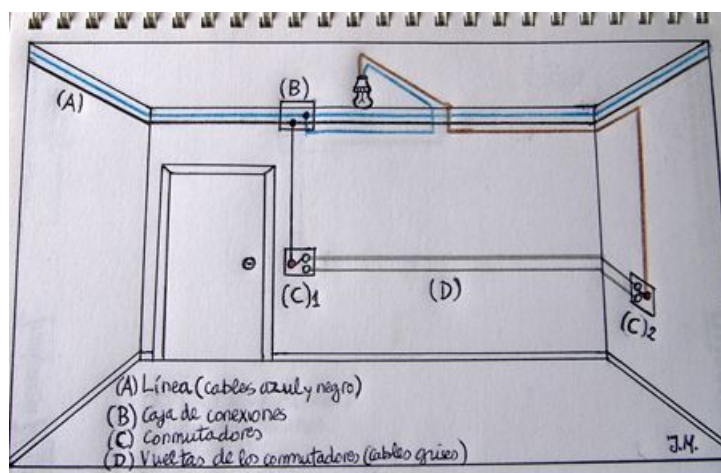 (A)
(B)
(C)1
(D)
(C)2
(A) Línea (cables azul y negro)
(B) Caja de conexiones
(C) Conmutadores
(D) Vueltas de los conmutadores (cables grises)
J.M.